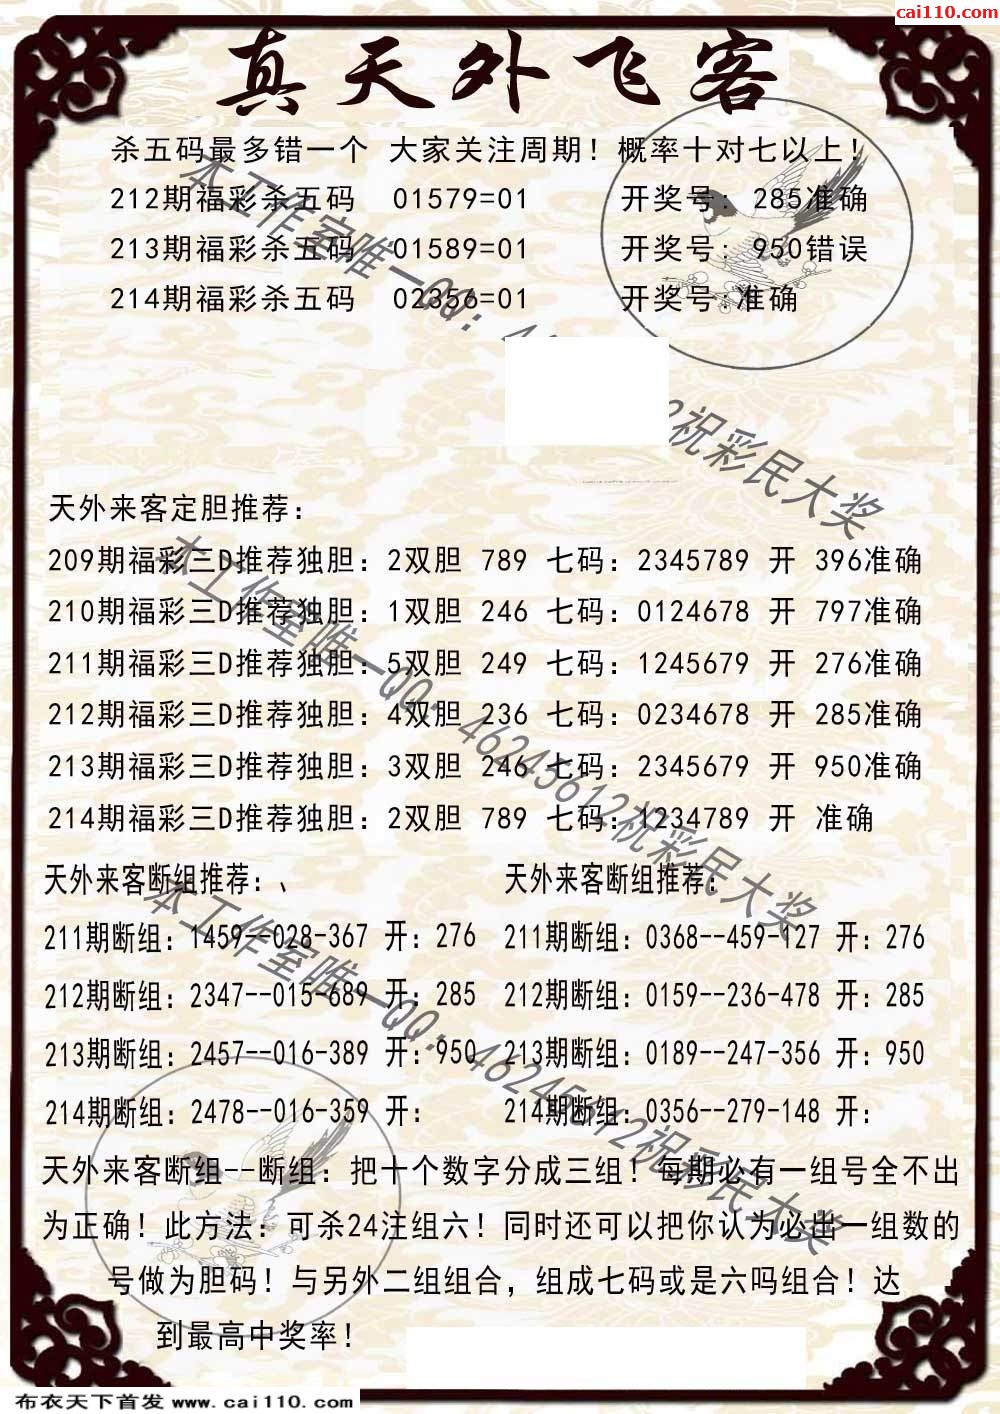 cai110.com
真天外飞客
杀五码最多错一个 大家关注周期！概率十对七以上！
212期福彩杀五码 01579=01 开奖号：285准确
213期福彩杀五码 01589=01 开奖号：950错误
214期福彩杀五码 02356=01 开奖号：准确
本工作室唯一QQ：46245612祝彩民大奖
天外来客定胆推荐：
209期福彩三D推荐独胆：2双胆 789 七码：2345789 开 396准确
210期福彩三D推荐独胆：1双胆 246 七码：0124678 开 797准确
211期福彩三D推荐独胆：5双胆 249 七码：1245679 开 276准确
212期福彩三D推荐独胆：4双胆 236 七码：0234678 开 285准确
213期福彩三D推荐独胆：3双胆 246 七码：2345679 开 950准确
214期福彩三D推荐独胆：2双胆 789 七码：1234789 开 准确
本工作室唯一QQ：46245612祝彩民大奖
天外来客断组推荐：、 天外来客断组推荐：
211期断组：1459--028-367 开：276 211期断组：0368--459-127 开：276
212期断组：2347--015-689 开：285 212期断组：0159--236-478 开：285
213期断组：2457--016-389 开：950 213期断组：0189--247-356 开：950
214期断组：2478--016-359 开： 214期断组：0356--279-148 开：
本工作室唯一QQ：46245612祝彩民大奖
天外来客断组--断组：把十个数字分成三组！每期必有一组号全不出
为正确！此方法：可杀24注组六！同时还可以把你认为必出一组数的
号做为胆码！与另外二组组合，组成七码或是六吗组合！达
到最高中奖率！
布衣天下首发 www.cai110.com